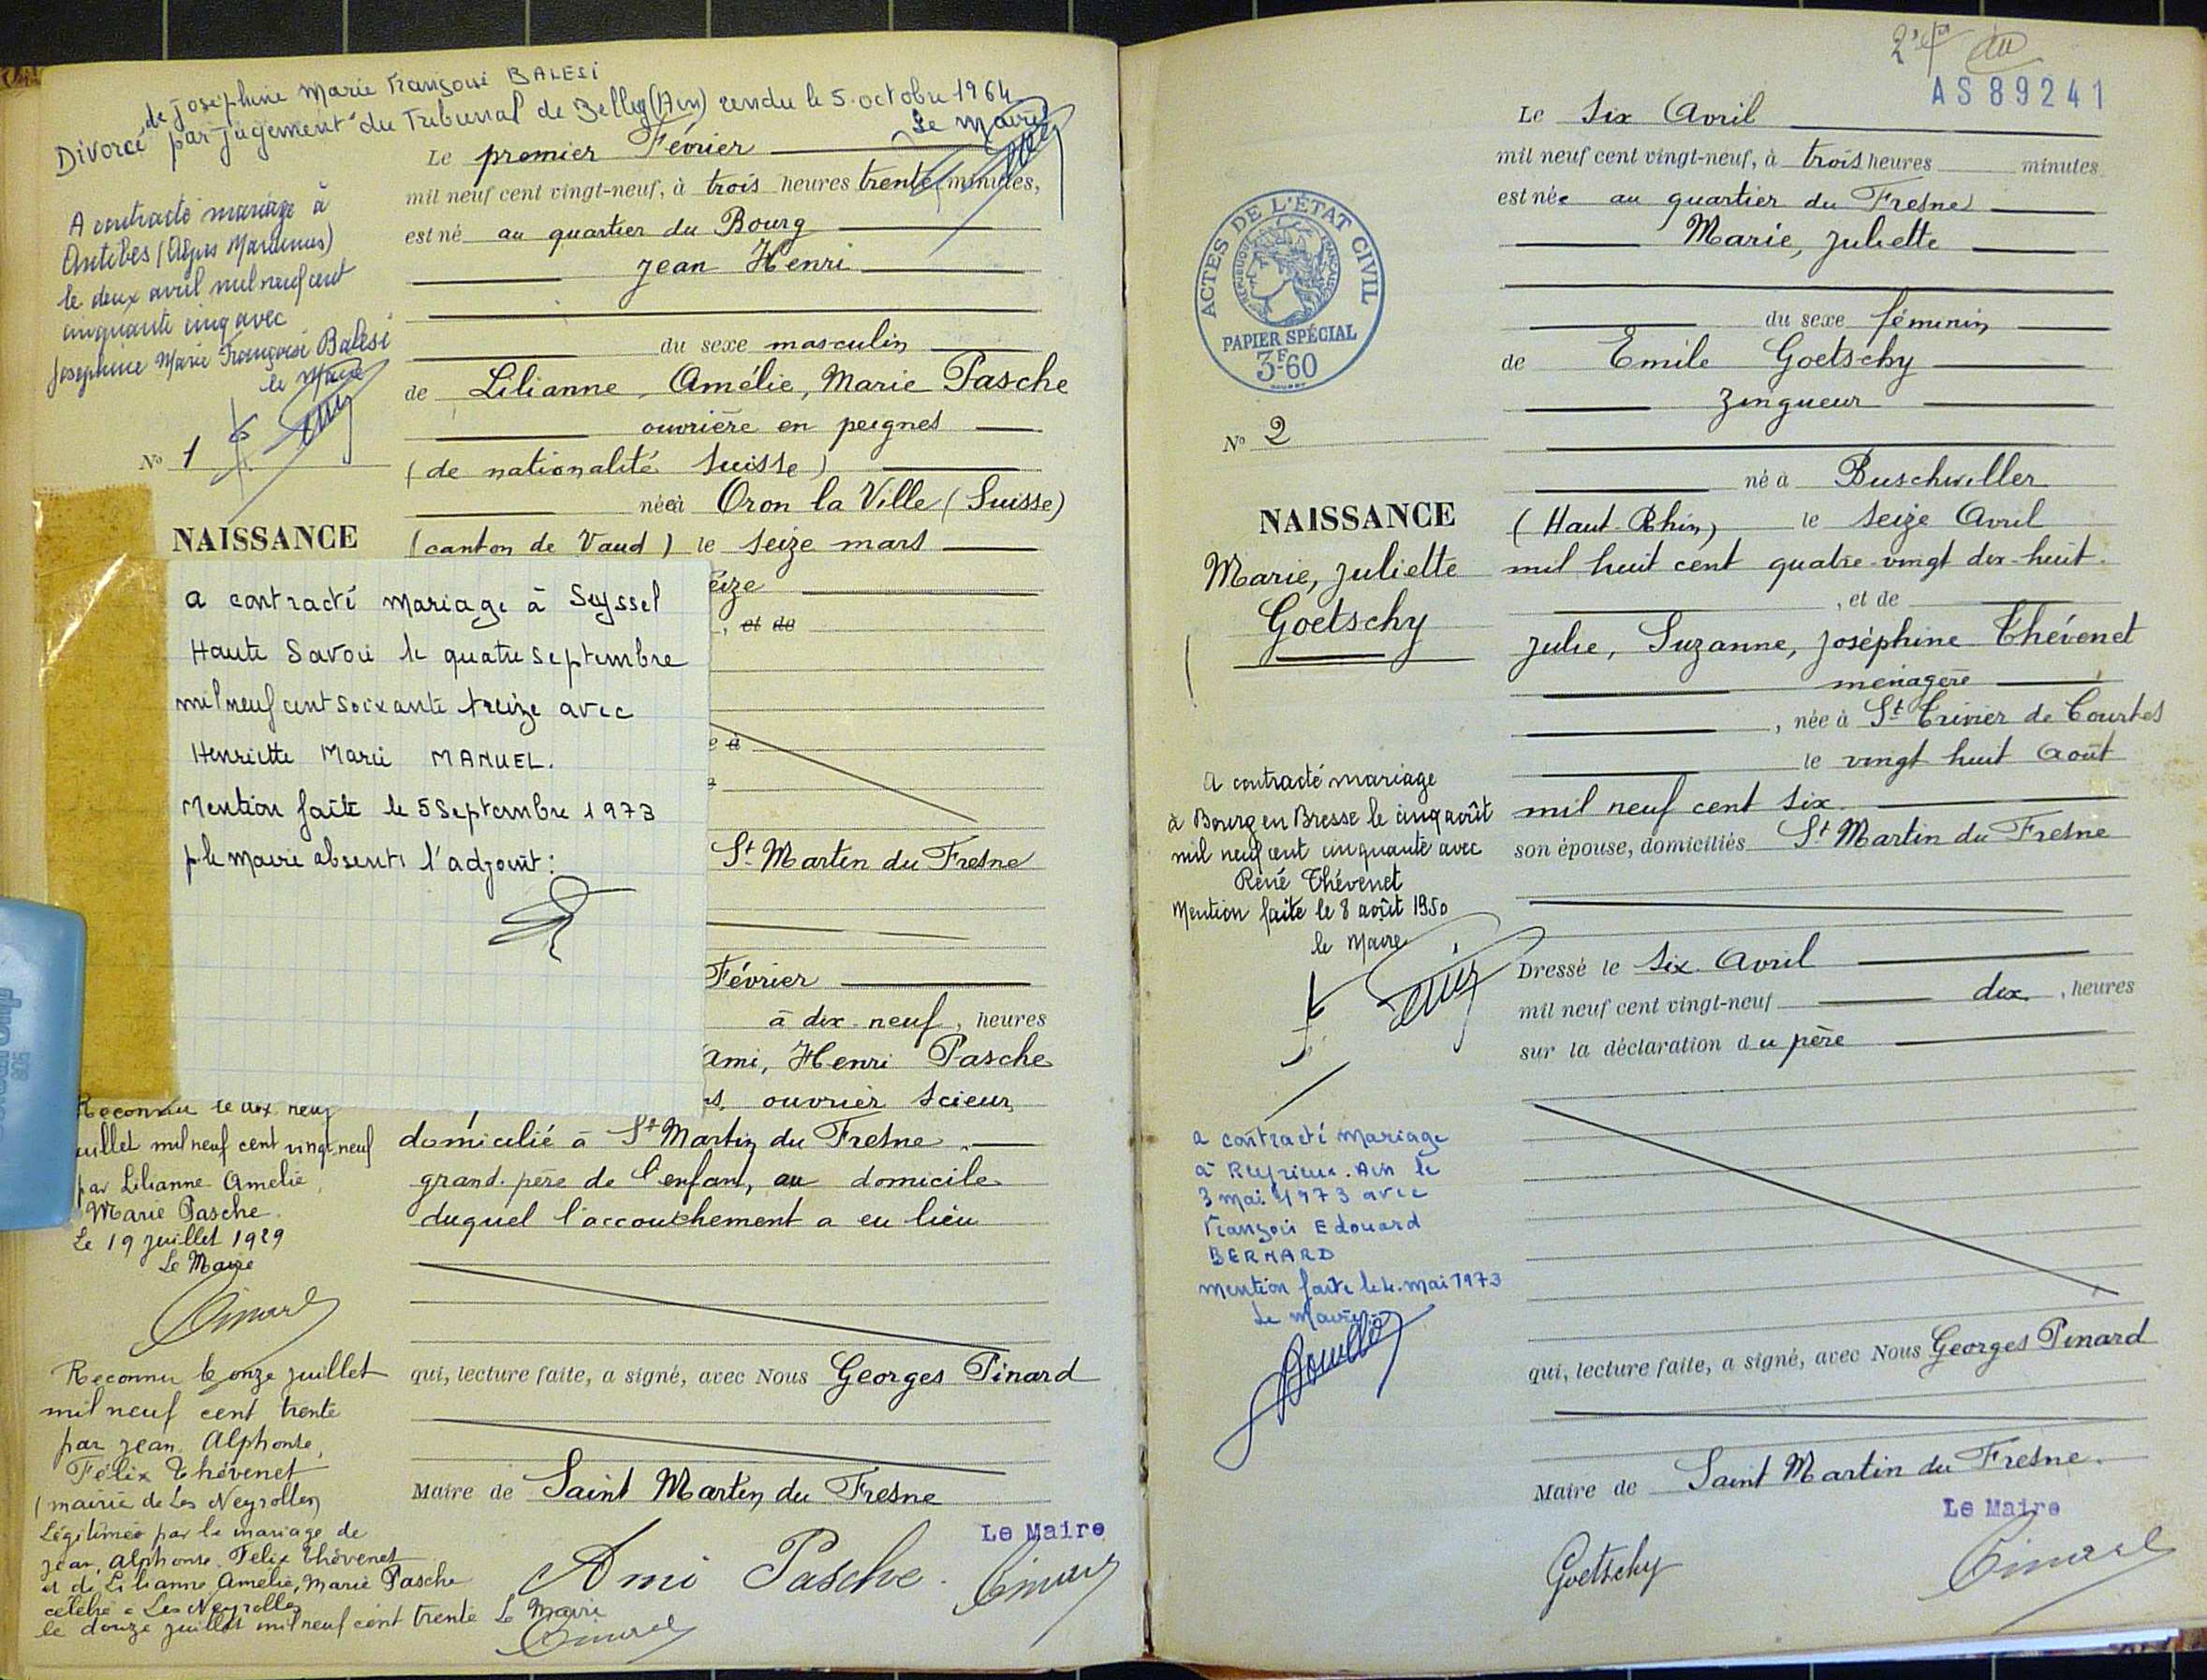 de Joséphine Marie Françoise BALESI
Divorcé par jugement du Tribunal de Belley (Ain) rendu le 5 octobre 1964
Le Maire
A contracté mariage à
Antibes (Alpes Maritimes)
le deux avril mil neuf cent
cinquante cinq avec
Josephine Marie Françoise Balesi
le Maire
N° 1
NAISSANCE
Le premier Février
mil neuf cent vingt-neuf, à trois heures trente minutes,
est né au quartier du Bourg
Jean Henri
du sexe masculin
de Lilianne, Amélie, Marie Pasche
ouvrière en peignes
(de nationalité suisse)
née à Oron la Ville (Suisse)
(canton de Vaud) le seize mars
eize
, et de
a contracté mariage à Seyssel
Haute Savoie le quatre septembre
mil neuf cent soixante treize avec
Henriette Marie MANUEL.
Mention faite le 5 Septembre 1973
p. le maire absent: l'adjoint:
e à
St Martin du Fresne
Février
à dix-neuf, heures
Ami, Henri Pasche
s, ouvrier scieur
domicilié à St Martin du Fresne
grand-père de l'enfant, au domicile
duquel l'accouchement a eu lieu
qui, lecture faite, a signé, avec Nous Georges Pinard
Maire de Saint Martin du Fresne
Le Maire
Ami Pasche
Reconnu le dix neuf
juillet mil neuf cent vingt-neuf
par Lilianne Amélie,
Marie Pasche
Le 19 juillet 1929
Le Maire
Reconnu le onze juillet
mil neuf cent trente
par Jean, Alphonse,
Félix Thévenet
(mairie de Les Neyrolles)
Légitimée par le mariage de
Jean, Alphonse, Felix Thévenet
et de Lilianne, Amélie, Marie Pasche
célébré à Les Neyrolles
le douze juillet mil neuf cent trente Le Maire
AS89241
ACTES DE L'ÉTAT CIVIL
RÉPUBLIQUE FRANÇAISE
PAPIER SPÉCIAL
3F60
N° 2
NAISSANCE
Marie, Juliette
Goetschy
Le six Avril
mil neuf cent vingt-neuf, à trois heures minutes
est née au quartier du Fresne
Marie, Juliette
du sexe féminin
de Emile Goetschy
zingueur
né à Buschwiller
(Haut-Rhin) le seize Avril
mil huit cent quatre-vingt dix-huit
, et de
Julie, Suzanne, Joséphine Thévenet
ménagère
, née à St Trivier de Courtes
le vingt huit Août
mil neuf cent six
son épouse, domiciliés St Martin du Fresne
Dressé le six Avril
mil neuf cent vingt-neuf dix, heures
sur la déclaration du père
qui, lecture faite, a signé, avec Nous Georges Pinard
Maire de Saint Martin du Fresne.
Le Maire
Goetschy
A contracté mariage
à Bourg en Bresse le cinq août
mil neuf cent cinquante avec
René Thévenet
Mention faite le 8 août 1950
le Maire
a contracté mariage
à Reyrieux. Ain le
3 mai 1973 avec
François Edouard
BERNARD
mention faite le 4. mai 1973
Le Maire